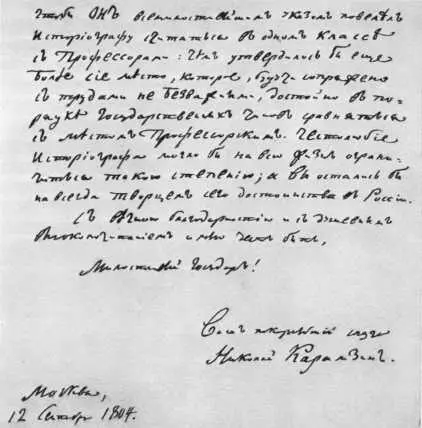 чтобы Онъ всемилостивѣйшимъ Указомъ повелѣлъ
Исторіографу считаться въ одномъ классѣ
съ Профессорами: чѣмъ утвердилось бы еще
болѣе сіе мѣсто, которое, будучи сопряжено
съ трудами не безважными, достойно въ по-
рядкѣ Государственныхъ Чиновъ сравняться
съ мѣстомъ Профессорскимъ. Честолюбіе
Исторіографа могло бы на всю жизнь ограни-
читься такою степенію; а Вы остались бы
на всегда творцемъ сего достоинства въ Россіи.
Съ вѣчною благодарностію и съ душевнымъ
высокопочитаніемъ имѣю честь быть,
Милостивый Государь!
Вашъ покорнѣйшій слуга
Николай Карамзинъ.
Москва,
12 Сентября 1804.